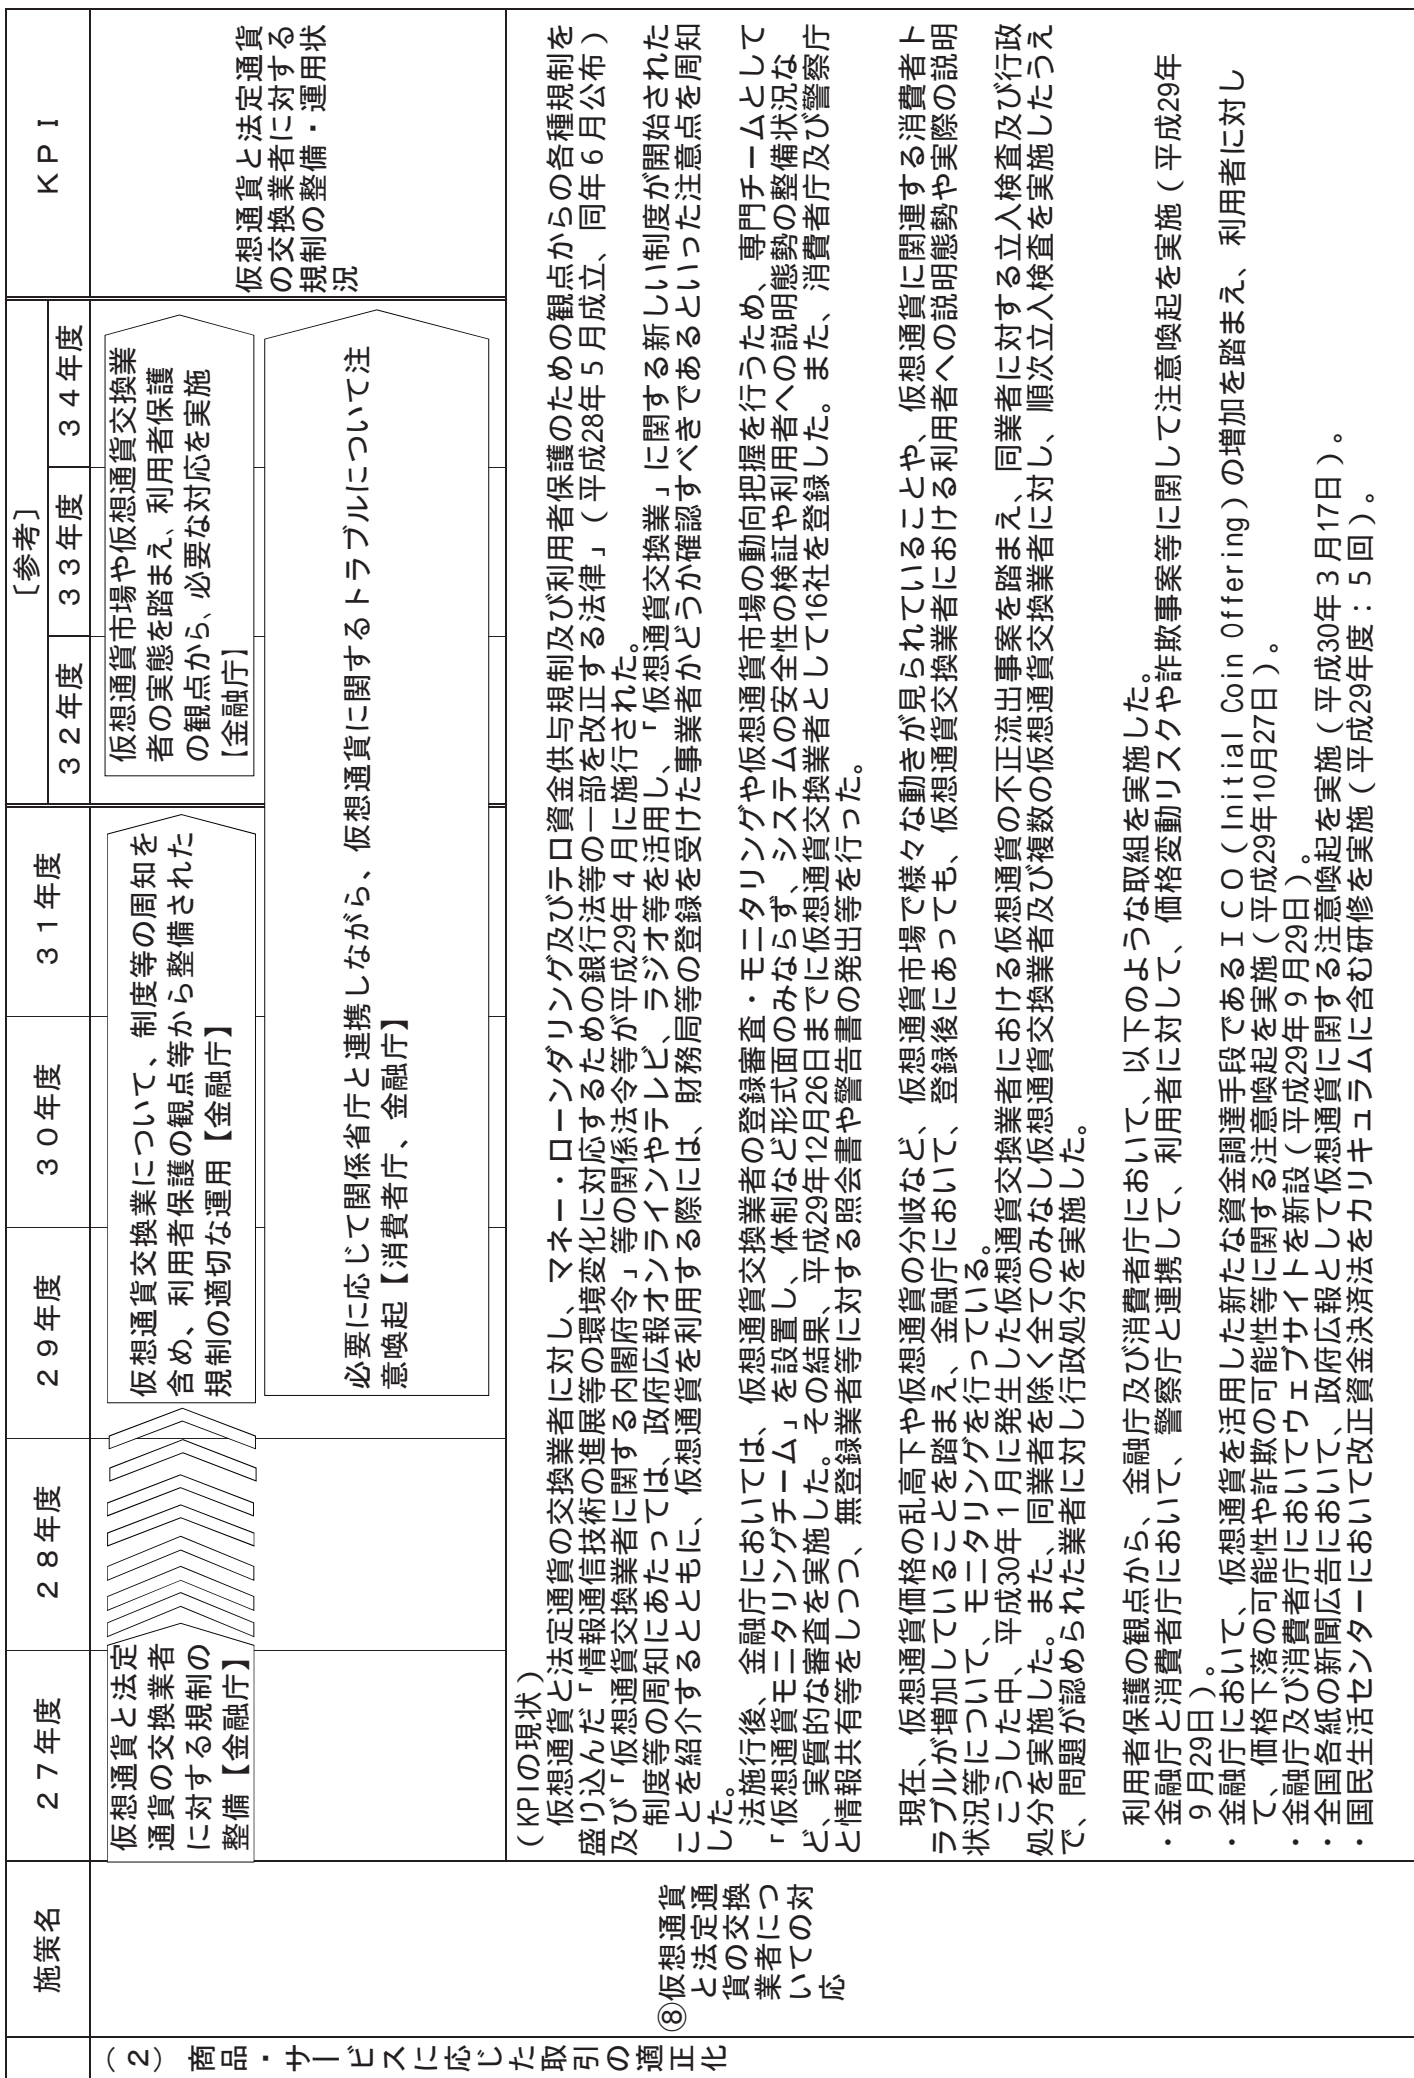 施策名
２７年度
２８年度
２９年度
３０年度
３１年度
［参考］
３２年度
３３年度
３４年度
ＫＰＩ
（２）商品・サービスに応じた取引の適正化
⑧仮想通貨
と法定通
貨の交換
業者につ
いての対
応
仮想通貨と法定
通貨の交換業者
に対する規制の
整備【金融庁】
仮想通貨交換業について、制度等の周知を
含め、利用者保護の観点等から整備された
規制の適切な運用【金融庁】
仮想通貨市場や仮想通貨交換業
者の実態を踏まえ、利用者保護
の観点から、必要な対応を実施
【金融庁】
必要に応じて関係省庁と連携しながら、仮想通貨に関するトラブルについて注
意喚起【消費者庁、金融庁】
仮想通貨と法定通貨
の交換業者に対する
規制の整備・運用状
況
（KPIの現状）
仮想通貨と法定通貨の交換業者に対し、マネー・ローンダリング及びテロ資金供与規制及び利用者保護のための観点からの各種規制を
盛り込んだ「情報通信技術の進展等の環境変化に対応するための銀行法等の一部を改正する法律」（平成28年５月成立、同年６月公布）
及び「仮想通貨交換業者に関する内閣府令」等の関係法令等が平成29年４月に施行された。
制度等の周知にあたっては、政府広報オンラインやテレビ、ラジオ等を活用し、「仮想通貨交換業」に関する新しい制度が開始された
ことを紹介するとともに、仮想通貨を利用する際には、財務局等の登録を受けた事業者かどうか確認すべきであるといった注意点を周知
した。
法施行後、金融庁においては、仮想通貨交換業者の登録審査・モニタリングや仮想通貨市場の動向把握を行うため、専門チームとして
「仮想通貨モニタリングチーム」を設置し、体制など形式面のみならず、システムの安全性の検証や利用者への説明態勢の整備状況な
ど、実質的な審査を実施した。その結果、平成29年12月26日までに仮想通貨交換業者として16社を登録した。また、消費者庁及び警察庁
と情報共有等をしつつ、無登録業者等に対する照会書や警告書の発出等を行った。
現在、仮想通貨価格の乱高下や仮想通貨の分岐など、仮想通貨市場で様々な動きが見られていることや、仮想通貨に関連する消費者ト
ラブルが増加していることを踏まえ、金融庁において、登録後にあっても、仮想通貨交換業者における利用者への説明態勢や実際の説明
状況等について、モニタリングを行っている。
こうした中、平成30年１月に発生した仮想通貨交換業者における仮想通貨の不正流出事案を踏まえ、同業者に対する立入検査及び行政
処分を実施した。また、同業者を除く全てのみなし仮想通貨交換業者及び複数の仮想通貨交換業者に対し、順次立入検査を実施したうえ
で、問題が認められた業者に対し行政処分を実施した。
利用者保護の観点から、金融庁及び消費者庁において、以下のような取組を実施した。
・金融庁と消費者庁において、警察庁と連携して、利用者に対して、価格変動リスクや詐欺事案等に関して注意喚起を実施（平成29年
９月29日）。
・金融庁において、仮想通貨を活用した新たな資金調達手段であるＩＣＯ（Initial Coin Offering）の増加を踏まえ、利用者に対し
て、価格下落の可能性や詐欺の可能性等に関する注意喚起を実施（平成29年10月27日）。
・金融庁及び消費者庁においてウェブサイトを新設（平成29年９月29日）。
・全国各紙の新聞広告において、政府広報として仮想通貨に関する注意喚起を実施（平成30年３月17日）。
・国民生活センターにおいて改正資金決済法をカリキュラムに含む研修を実施（平成29年度：５回）。